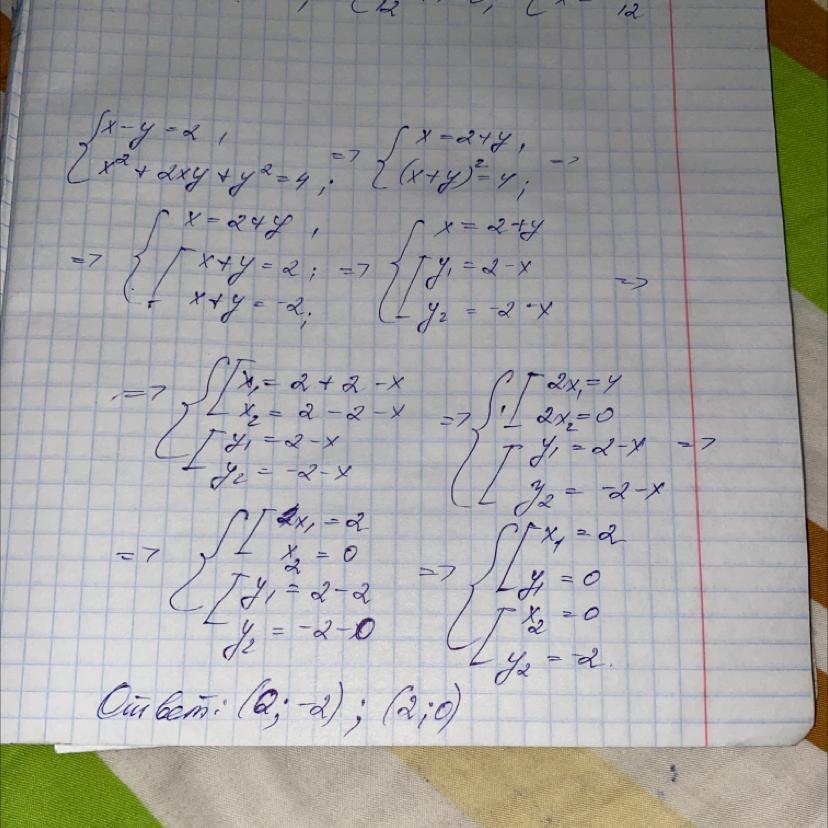 x-y=2,
x²+2xy+y²=4; => x=2+y,
(x+y)²=4; =>
=> x=2+y,
x+y=2;
x+y=-2; => x=2+y
y₁=2-x
y₂=-2-x =>
=> x₁=2+2-x
x₂=2-2-x
y₁=2-x
y₂=-2-x => 2x₁=4
2x₂=0
y₁=2-x
y₂=-2-x =>
=> x₁=2
x₂=0
y₁=2-2
y₂=-2-0 => x₁=2
y₁=0
x₂=0
y₂=-2.
Ответ: (0;-2); (2;0)